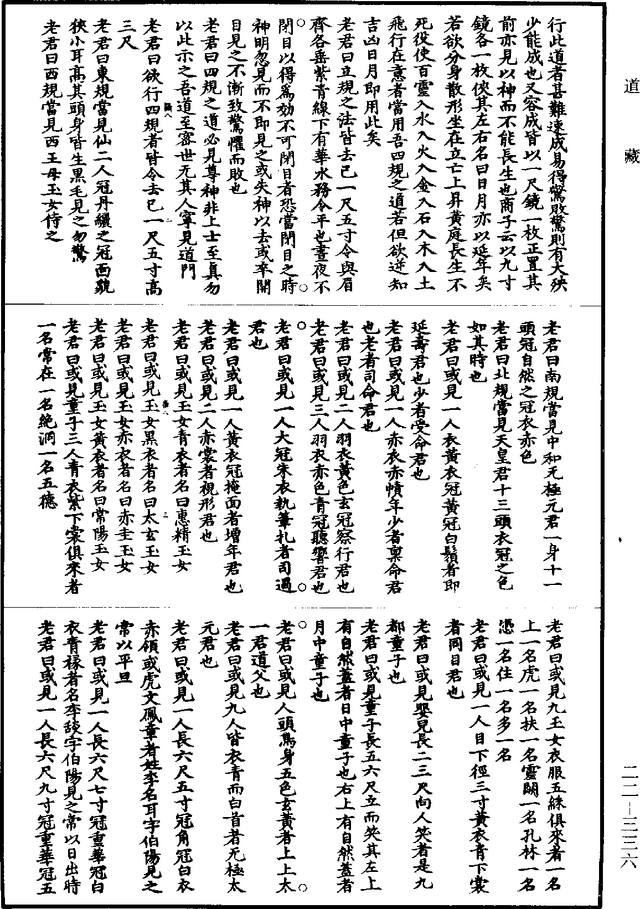 道藏
行此道者甚難速成易得驚敗驚則有大殃
少能成也又容成皆以一尺鏡一枚正置其
前亦見以神而不能長生也商子云以九寸
鏡各一枚侠其左右名曰日月亦以延年矣
若欲分身散形坐在立亡上昇黄庭長生不
死役使百靈入水入火入金入石入木入土
飛行在意者當用吾四規之道若但欲逆知
吉凶日月即用此矣
老君曰立規之法皆去已一尺五寸令與眉
齊各垂紫青線下有華水務令平也晝夜不
閉目以得爲効不可閉目者恐當閉目之時
神明忽見而不即見之或失神以去或卒開
目見之不漸致驚懼而敗也
老君曰四規之道必見尊神非上士至真勿
以此示之吾道至容世无其人寧見道門
老君曰欲行四規者皆令去已一尺五寸高
三尺
老君曰東規當見仙二人冠丹纚之冠面貌
狹小耳高其頭身皆生黑毛見之勿驚
老君曰西規當見西王母玉女侍之
老君曰南規當見中和无極元君一身十一
頭冠自然之冠衣赤色
老君曰北規當見天皇君十三頭衣冠之色
如其時也
老君曰或見一人衣黄衣冠黄冠白鬚者即
延壽君也少者受命君也
老君曰或見一人赤衣赤幘年少者禀命君
也老者司命君也
老君曰或見二人羽衣黄色玄冠察行君也
老君曰或見三人羽衣赤色青冠聽響君也
老君曰或見一人大冠朱衣執筆札者司過
君也
老君曰或見一人黄衣冠掩面者增年君也
老君曰或見二人赤裳者視形君也
老君曰或見玉女青衣者名曰惠精玉女
老君曰或見玉女黑衣者名曰太玄玉女
老君曰或見玉女赤衣者名曰赤圭玉女
老君曰或見玉女黄衣者名曰常陽玉女
老君曰或見童子三人青衣紫下裳俱來者
一名常在一名絶洞一名五德
老君曰或見九玉女衣服五綵俱來者一名
上一名虎一名扶一名靈闕一名孔林一名
憑一名住一名多一名
老君曰或見一人目下徑三寸黄衣青下裳
者岡目君也
老君曰或見嬰兒長二三尺向人笑者是九
都童子也
老君曰或見童子長五六尺立而笑其左上
有自然蓋者日中童子也右上有自然蓋者
月中童子也
老君曰或見人頭馬身五色玄黄者上上太
一君道父也
老君曰或見九人皆衣青而白首者无極太
元君也
老君曰或見一人長六尺五寸冠角冠白衣
赤領或虎文鳳章者姓李名耳字伯陽見之
常以平旦
老君曰或見一人長六尺七寸冠重華冠白
衣青緣者名李琰字伯陽見之常以日出時
老君曰或見一人長六尺九寸冠重華冠五
二二—三三六